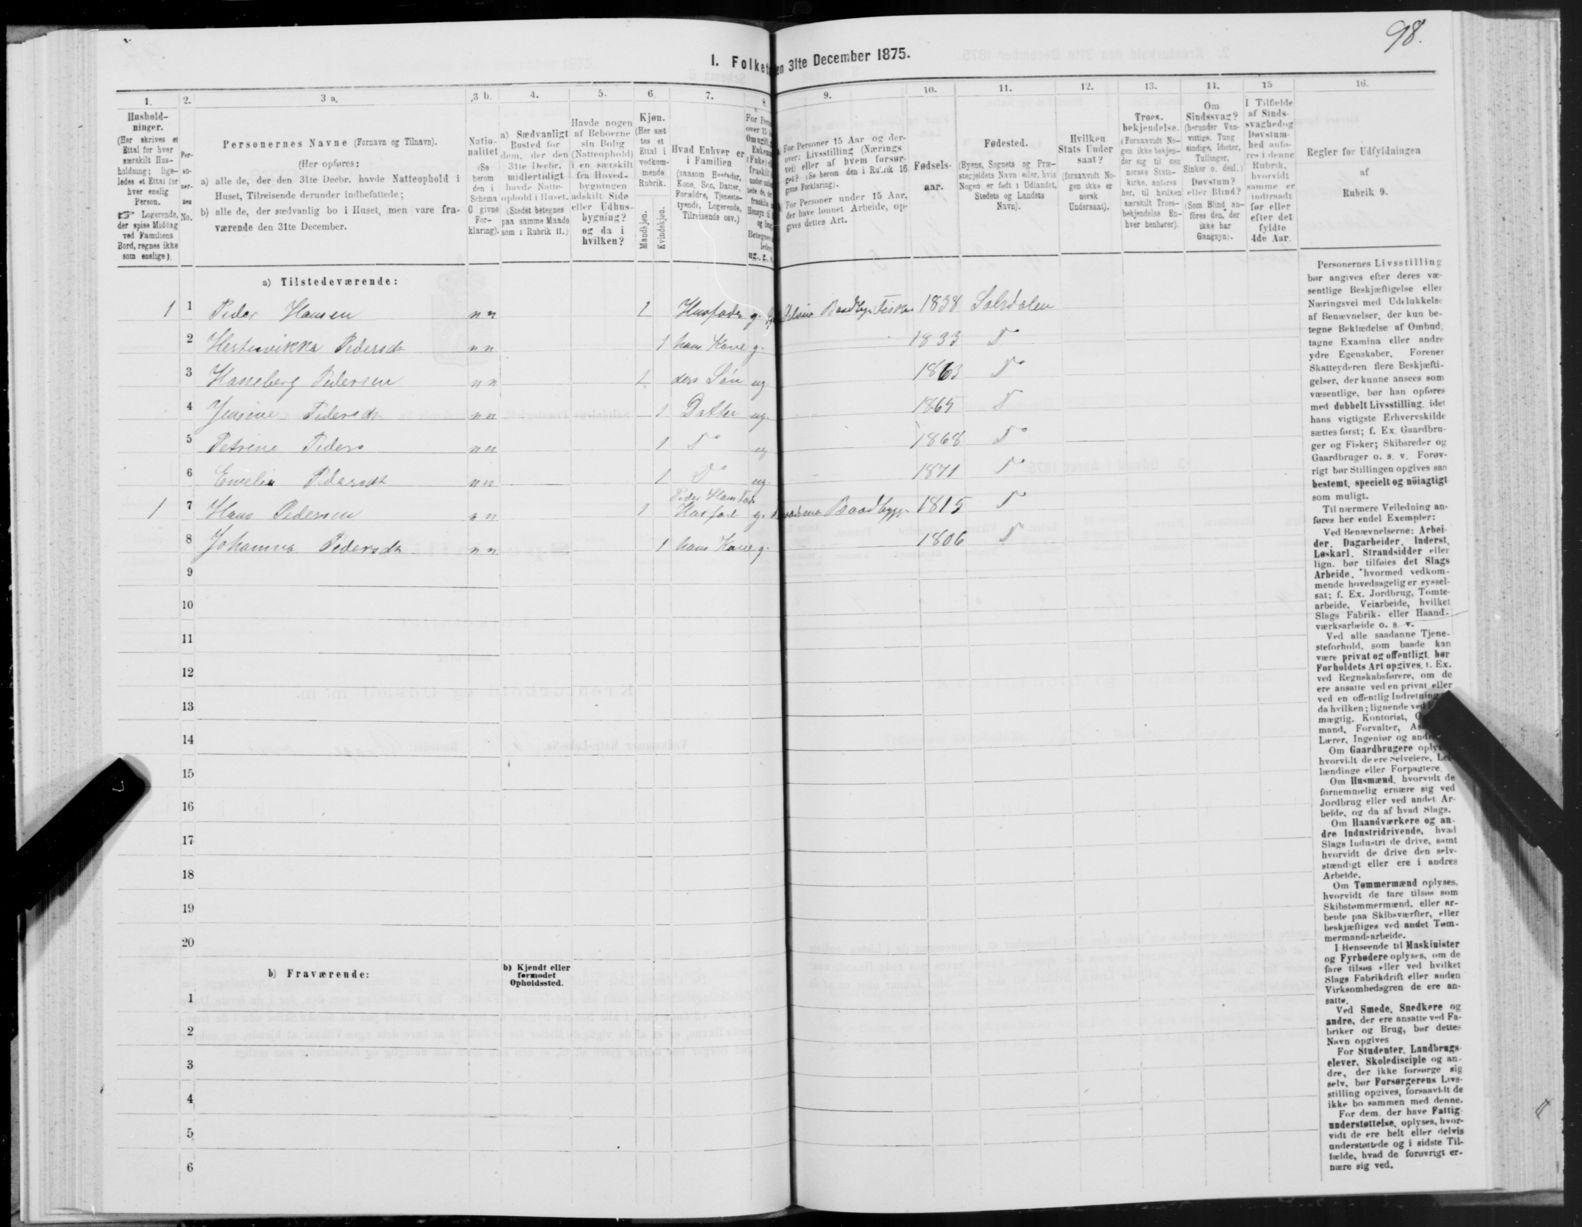 98.
I. Folket
en 31te December 1875.
1.
Hushold-
ninger.
(Her skrives et
Ettal for hver
særskilt Hus-
holdning; lige-
ledes et Ettal for
hver enslig
Person.
Logerende,
der spise Middag
ved Familiens
Bord, regnes ikke
som enslige).
2.
Per-
so-
ner-
nes
No.
3 a.
Personernes Navne (Fornavn og Tilnavn).
(Her opføres:
a) alle de, der den 31te Decbr. havde Natteophold i
Huset, Tilreisende derunder indbefattede;
b) alle de, der sædvanlig bo i Huset, men vare fra-
værende den 31te December.
3 b.
Natio-
nalitet
(Se
herom
den i
Schema
G givne
For-
klaring).
4.
a) Sædvanligt
Bosted for
dem, der den
31te Decbr.
midlertidigt
havde Natte-
ophold i Huset.
(Stedet betegnes
paa samme Maade
som i Rubrik 11.)
5.
Havde nogen
af Beboerne
sin Bolig
(Natteophold)
i en særskilt
fra Hoved-
bygningen
adskilt Side
eller Udhus-
bygning?
og da i
hvilken?
6.
Kjøn.
(Her sæt
tes et
Ettal i
vedkom-
mende
Rubrik.
Mandkjøn.
Kvindekjøn.
7.
Hvad Enhver er
i Familien
(saasom Husfader,
Kone, Søn, Datter,
Forældre, Tjeneste-
tyende, Logerende,
Tilreisende osv.)
8.
9.
For Personer 15 Aar og der-
over: Livsstilling (Nærings
vei) eller af hvem forsør-
get? (Se herom den i Rubrik 16
givne Forklaring).
For Personer under 15 Aar,
der have lønnet Arbeide, op-
gives dettes Art.
10.
Fødsels-
aar.
11.
Fødested.
(Byens, Sognets og Præ-
stegjeldets Navn eller, hvis
Nogen er født i Udlandet,
Stedets og Landets
Navn).
12.
Hvilken
Stats Under
saat?
(forsaavidt No-
gen ikke er
norsk
Undersaat).
13.
Troes-
bekjendelse.
(Forsaavidt No-
gen ikke bekjen-
der sig til den
norske Stats-
kirke, anføres
her, til hvilken
særskilt Troes-
bekjendelse En-
hver henhører).
14.
Om
Sindssvag?
(herunder Van-
vittige, Tung
sindige, Idioter,
Tullinger,
Sinker o. desl.)
Døvstum?
eller Blind?
(Som Blind an-
føres den, der
ikke har
Gangsyn).
15
I Tilfælde
af Sinds-
svaghed og
Døvstum-
hed anfø-
res i denne
Rubrik,
hvorvidt
samme er
indtraadt
før eller
efter det
fyldte
4de Aar.
16.
Regler for Udfyldningen
af
Rubrik 9.
a) Tilstedeværende:
1 1 Peder Hansen nn 1 Husfader g. Baadbyg Fisker 1838 Salsdalen
2 Pedersdt nn 1 hans Kone g. 1833 Do
3 Hasseberg Pedersen nn 1 deres Søn ug 1863 Do
4 Jensine Pedersdt nn 1 Datter ug. 1865 Do
5 Petrine Peders nn 1 Do ug 1868 Do
6 Emelia Pedersdt nn 1 Do ug. 1871 Do
1 7 Hans Pedersen nn 1 Peder Hans Fad Husfad g. Baadbygg 1815 Do
8 Johanna Pedersdt nn 1 hans Kone g. 1806 Do
9
10
11
12
13
14
15
16
17
18
19
20
b) Fraværende:
b) Kjendt eller
formodet
Opholdssted.
1
2
3
4
5
6
Personernes Livsstilling
bør angives efter deres væ-
sentlige Beskjæftigelse eller
Næringsvei med Udelukkelse
af Benævnelser, der kun be-
tegne Beklædelse af Ombud,
tagne Examina eller andre
ydre Egenskaber. Forener
Skatteyderen flere Beskjæfti-
gelser, der kunne ansees som
væsentlige, bør han opføres
med dobbelt Livsstilling, idet
hans vigtigste Erhvervskilde
sættes først; f. Ex. Gaardbru-
ger og Fisker; Skibsreder og
Gaardbruger o. s. v. Forøv-
rigt bør Stillingen opgives saa
bestemt, specielt og nøiagtigt
som muligt.
Til nærmere Veiledning an-
føres her endel Exempler:
Ved Benævnelserne: Arbei-
der, Dagarbeider, Inderst,
Løskarl, Strandsidder eller
lign. bør tilføies det Slags
Arbeide, hvormed vedkom-
mende hovedsagelig er syssel-
sat; f. Ex. Jordbrug, Tomte-
arbeide, Veiarbeide, hvilket
Slags Fabrik- eller Haand-
værksarbeide o. s. v.
Ved alle saadanne Tjene-
steforhold, som baade kan
være privat og offentligt, bør
Forholdets Art opgives, f. Ex.
ved Regnskabsførere, om de
ere ansatte ved en privat eller
ved en offentlig Indretning
da hvilken; lignende ved
mægtig, Kontorist,
mand, Forvalter,
Lærer, Ingeniør og and
Om Gaardbrugere oply
hvorvidt de ere Selveiere,
lændinge eller Forpagtere.
Om Husmænd, hvorvidt de
fornemmelig ernære sig ved
Jordbrug eller ved andet Ar-
beide, og da af hvad Slags.
Om Haandværkere og an-
dre Industridrivende, hvad
Slags Industri de drive, samt
hvorvidt de drive den selv-
stændigt eller ere i andres
Arbeide.
Om Tømmermænd oplyses,
hvorvidt de fare tilsøs som
Skibstømmermænd, eller ar-
beide paa Skibsværfter, eller
beskjæftiges ved andet Tøm-
mermandsarbeide.
I Henseende til Maskinister
og Fyrbødere oplyses, om de
fare tilsøs eller ved hvilket
Slags Fabrikdrift eller anden
Virksomhedsgren de ere an-
satte.
Ved Smede, Snedkere og
andre, der ere ansatte ved Fa-
briker og Brug, bør dettes
Navn opgives
For Studenter, Landbrugs-
elever, Skoledisciple og an-
dre, der ikke forsørge sig
selv, bør Forsørgerens Livs-
stilling opgives, forsaavidt de
ikke bo sammen med denne.
For dem, der have Fattig-
understøttelse, oplyses, hvor-
vidt de ere helt eller delvis
understøttede og i sidste Til-
fælde, hvad de forøvrigt er-
nære sig ved.